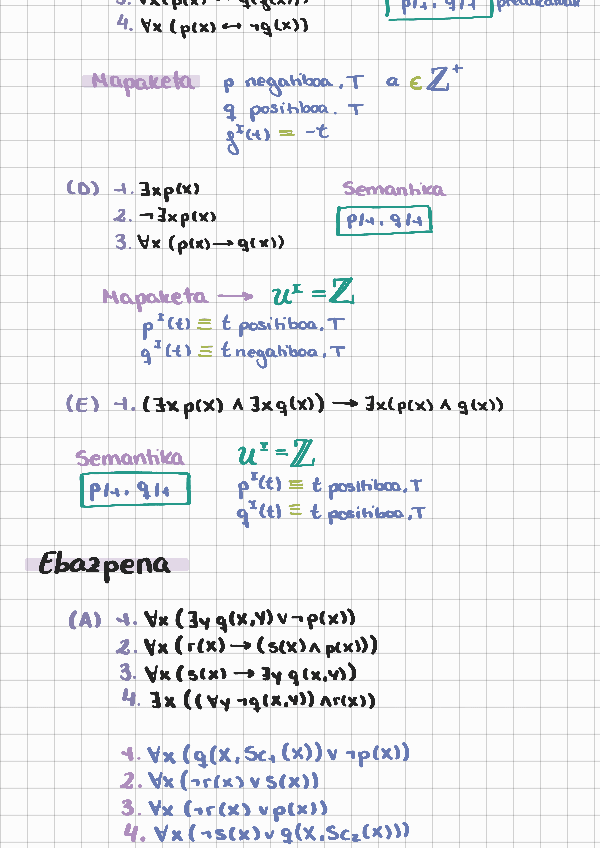 4. ∀x (p(x) ↔ ¬g(x))
Mapaketa p negatiboa, T a ∈ ℤ⁺
q positiboa. T
gᴵ(t) ≡ -t
(D) 1. ∃x p(x)
2. ¬∃x p(x)
3. ∀x (p(x) → g(x))
Semantika
p/1. q/1
Mapaketa → 𝒰ᴵ = ℤ
pᴵ(t) ≡ t positiboa, T
qᴵ(t) ≡ t negatiboa, T
(E) 1. (∃x p(x) ∧ ∃x g(x)) → ∃x (p(x) ∧ g(x))
Semantika 𝒰ᴵ = ℤ
p/1. q/1
pᴵ(t) ≡ t positiboa, T
qᴵ(t) ≡ t positiboa, T
Ebazpena
(A) 1. ∀x (∃y g(x,y) ∨ ¬p(x))
2. ∀x (r(x) → (s(x) ∧ p(x)))
3. ∀x (s(x) → ∃y g(x,y))
4. ∃x ((∀y ¬g(x,y)) ∧ r(x))
1. ∀x (g(x, Sc₁(x)) ∨ ¬p(x))
2. ∀x (¬r(x) ∨ s(x))
3. ∀x (¬r(x) ∨ p(x))
4. ∀x (¬s(x) ∨ g(x, Sc₂(x)))